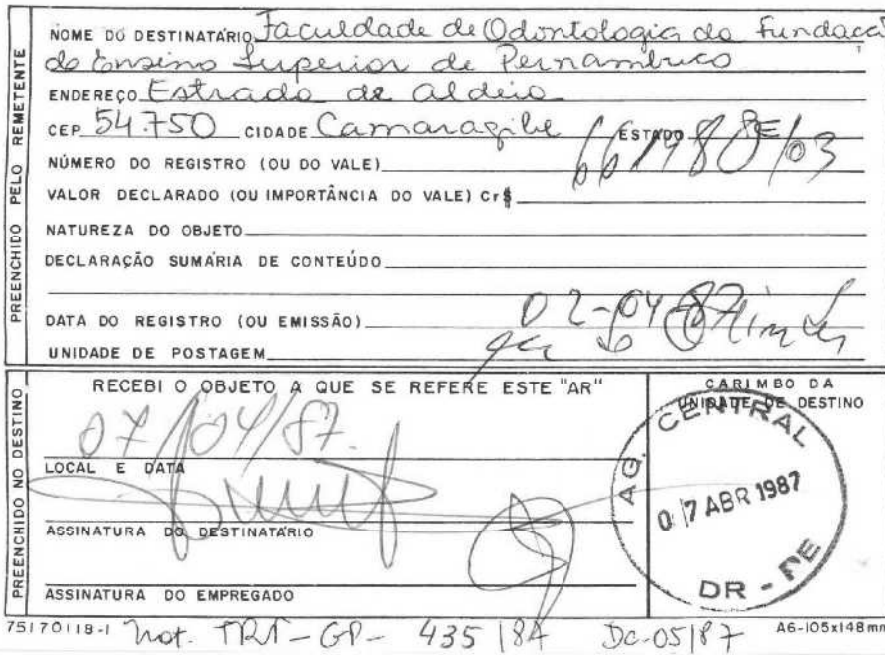 PREENCHIDO PELO REMETENTE
NOME DO DESTINATÁRIO Faculdade de Odontologia da Fundaçã
do Ensino Superior de Pernambuco
ENDEREÇO Estrada de aldeia
CEP 54.750 CIDADE Camaragibe ESTADO PE
661980/03
NÚMERO DO REGISTRO (OU DO VALE)
VALOR DECLARADO (OU IMPORTÂNCIA DO VALE) Cr$
NATUREZA DO OBJETO
DECLARAÇÃO SUMÁRIA DE CONTEÚDO
DATA DO REGISTRO (OU EMISSÃO) 02-04-87
UNIDADE DE POSTAGEM
PREENCHIDO NO DESTINO
RECEBI O OBJETO A QUE SE REFERE ESTE "AR"
07/04/87.
LOCAL E DATA
ASSINATURA DO DESTINATÁRIO
ASSINATURA DO EMPREGADO
CARIMBO DA
UNIDADE DE DESTINO
AG. CENTRAL
07 ABR 1987
DR - PE
75170118-1 not. TRT-GP- 435/87 Dc-05/87 A6-105x148mm